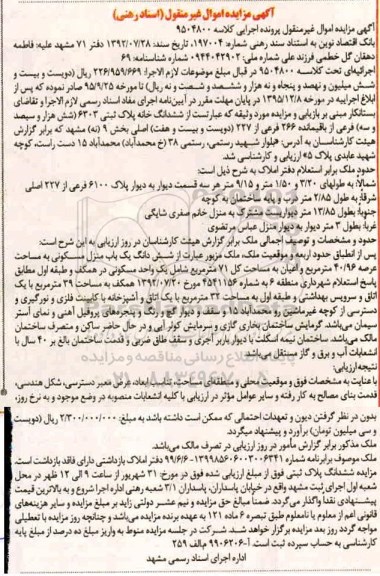 آگهی مزایده اموال غیرمنقول (اسناد رهنی)
آگهی مزایده اموال غیرمنقول پرونده اجرایی کلاسه ۹۵۰۴۸۰۰
بانک اقتصاد نوین به استناد سند رهنی شماره: ۱۹۷۰۰۴، تاریخ سند: ۱۳۹۲/۰۷/۲۸ دفتر ۷۱ مشهد علیه: فاطمه
دهقان گل خطمی فرزند علی شماره ملی: ۰۹۴۴۰۴۲۹۰۲ شماره شناسنامه: ۶۹
اجرائیه‌ای تحت کلاسه ۹۵۰۴۸۰۰ در قبال مبلغ موضوعات لازم الاجرا: ۲۲۶/۹۵۹/۶۶۹ ریال (دویست و بیست و
شش میلیون و نهصد و پنجاه و نه هزار و ششصد و شصت و نه ریال) تا مورخه ۹۵/۹/۲۵ صادر نموده که پس از
ابلاغ اجراییه در مورخه ۱۳۹۵/۱۲/۸ در پایان مهلت مقرر در آیین‌نامه اجرای مفاد اسناد رسمی لازم الاجرا و تقاضای
بستانکار مبنی بر بازیابی و مزایده مورد وثیقه که عبارتست از ششدانگ خانه پلاک ثبتی ۶۳۰۳ (شش هزار و سیصد
و سه) فرعی از باقیمانده ۲۶۶ فرعی از ۲۲۷ (دویست و بیست و هفت) اصلی بخش ۹ (نه) مشهد که برابر گزارش
هیئت کارشناسان به آدرس: «بلوار شهید رستمی، رستمی ۳۸ (خ محمدآباد) محمدآباد ۱۵ دست راست، کوچه
شهید عابدی پلاک ۵» ارزیابی و کارشناسی شد.
حدود ملک برابر استعلام دفتر املاک به شرح ذیل است:
شمالا: به طولهای ۳/۲۰ و ۱/۵۰ متر و ۹/۱۵ متر هر سه قسمت دیوار به دیوار پلاک ۶۱۰۰ فرعی از ۲۲۷ اصلی
شرقا: به طول ۲/۸۵ متر درب و پایه ساختمان به کوچه
جنوبا: بطول ۱۳/۸۵ متر دیواریست مشترک به منزل خانم صغری شایگی
غربا: بطول ۳ متر دیوار به دیوار منزل عباس مرتضوی
حدود و مشخصات و توصیف اجمالی ملک برابر گزارش هیئت کارشناسان در روز ارزیابی به این شرح است:
پس از انطباق حدود اربعه و موقعیت ملک، ملک مزبور عبارت از شش دانگ یک باب منزل مسکونی به مساحت
عرصه ۴۰/۹۶ مترمربع و اعیان به مساحت کل ۷۱ مترمربع شامل یک واحد مسکونی در همکف و طبقه اول مطابق
پاسخ استعلام شهرداری منطقه ۶ به شماره ۴۵۴۱۱۵۶ مورخ ۱۳۹۲/۰۷/۲۰ همکف به مساحت ۳۹ مترمربع با یک
اتاق و سرویس بهداشتی و طبقه اول به مساحت ۳۲ مترمربع با یک اتاق و آشپزخانه با کابینت فلزی و نورگیری و
دسترسی از کوچه غیرماشین رو محمدآباد ۱۵ و سقف و دیوار گچ و رنگ و پنجره‌های پروفیل آهنی و نمای آستر
سیمان می‌باشد. گرمایش ساختمان بخاری گازی و سرمایش کولر آبی و در حال حاضر ساکن و متصرف ساختمان
مالک می‌باشد. ساختمان نیمه اسکلت با دیوار باربر آجری و سقف طاق ضربی و قدمت ساختمان بالغ بر ۴۰ سال با
انشعابات آب و برق و گاز مستقل می‌باشد.
نتیجه ارزیابی:
با عنایت به مشخصات فوق و موقعیت محلی و منطقه‌ای مساحت، تناسب ابعاد، عرض معبر دسترسی، شکل هندسی،
قدمت بنای مصالح به کار رفته و سایر عوامل مؤثر در ارزیابی با کلیه انشعابات منصوبه در وضع موجود و به نرخ روز،
بدون در نظر گرفتن دیون و تعهدات احتمالی که ممکن است داشته باشد به مبلغ: ۲/۳۰۰/۰۰۰/۰۰۰ ریال (دویست
و سی میلیون تومان) برآورد و پیشنهاد میگردد.
ملک مذکور برابر گزارش مأمور در روز ارزیابی در تصرف مالک می‌باشد.
ملک موصوف برابر نامه شماره ۱۳۹۹۸۵۶۰۶۰۰۲۰۶۳۴۱-۹۹/۶/۶ دفتر املاک بازداشتی دارای فاقد بازداشت است.
مزایده ششدانگ پلاک ثبتی فوق از مبلغ ارزیابی شده فوق در مورخ: ۳۱ شهریور از ساعت ۹ الی ۱۲ ظهر در محل
شعبه اول اجرای ثبت مشهد واقع در خیابان پاسداران، پاسداران ۳/۱ شعبه رهنی اداره اجرا شروع و به بالاترین قیمت
پیشنهادی نقدا واگذار می‌گردد. ضمنا مبالغ حق مزایده و نیم عشر دولتی زاید بر مبلغ مزایده و سایر هزینه‌های
قانونی اعم از معلوم یا نامعلوم طبق تبصره ۶ ماده ۱۲۱ به عهده برنده مزایده می‌باشد و چنانچه روز مزایده با تعطیلی
مواجه گردد روز بعد مزایده برگزار خواهد شد. شرکت در جلسه مزایده منوط به واریز مبلغ ده درصد از مبلغ پایه
کارشناسی به حساب سپرده ثبت است. آ-۹۹۰۶۲۰۶ م.الف ۲۵۹
اداره اجرای اسناد رسمی مشهد